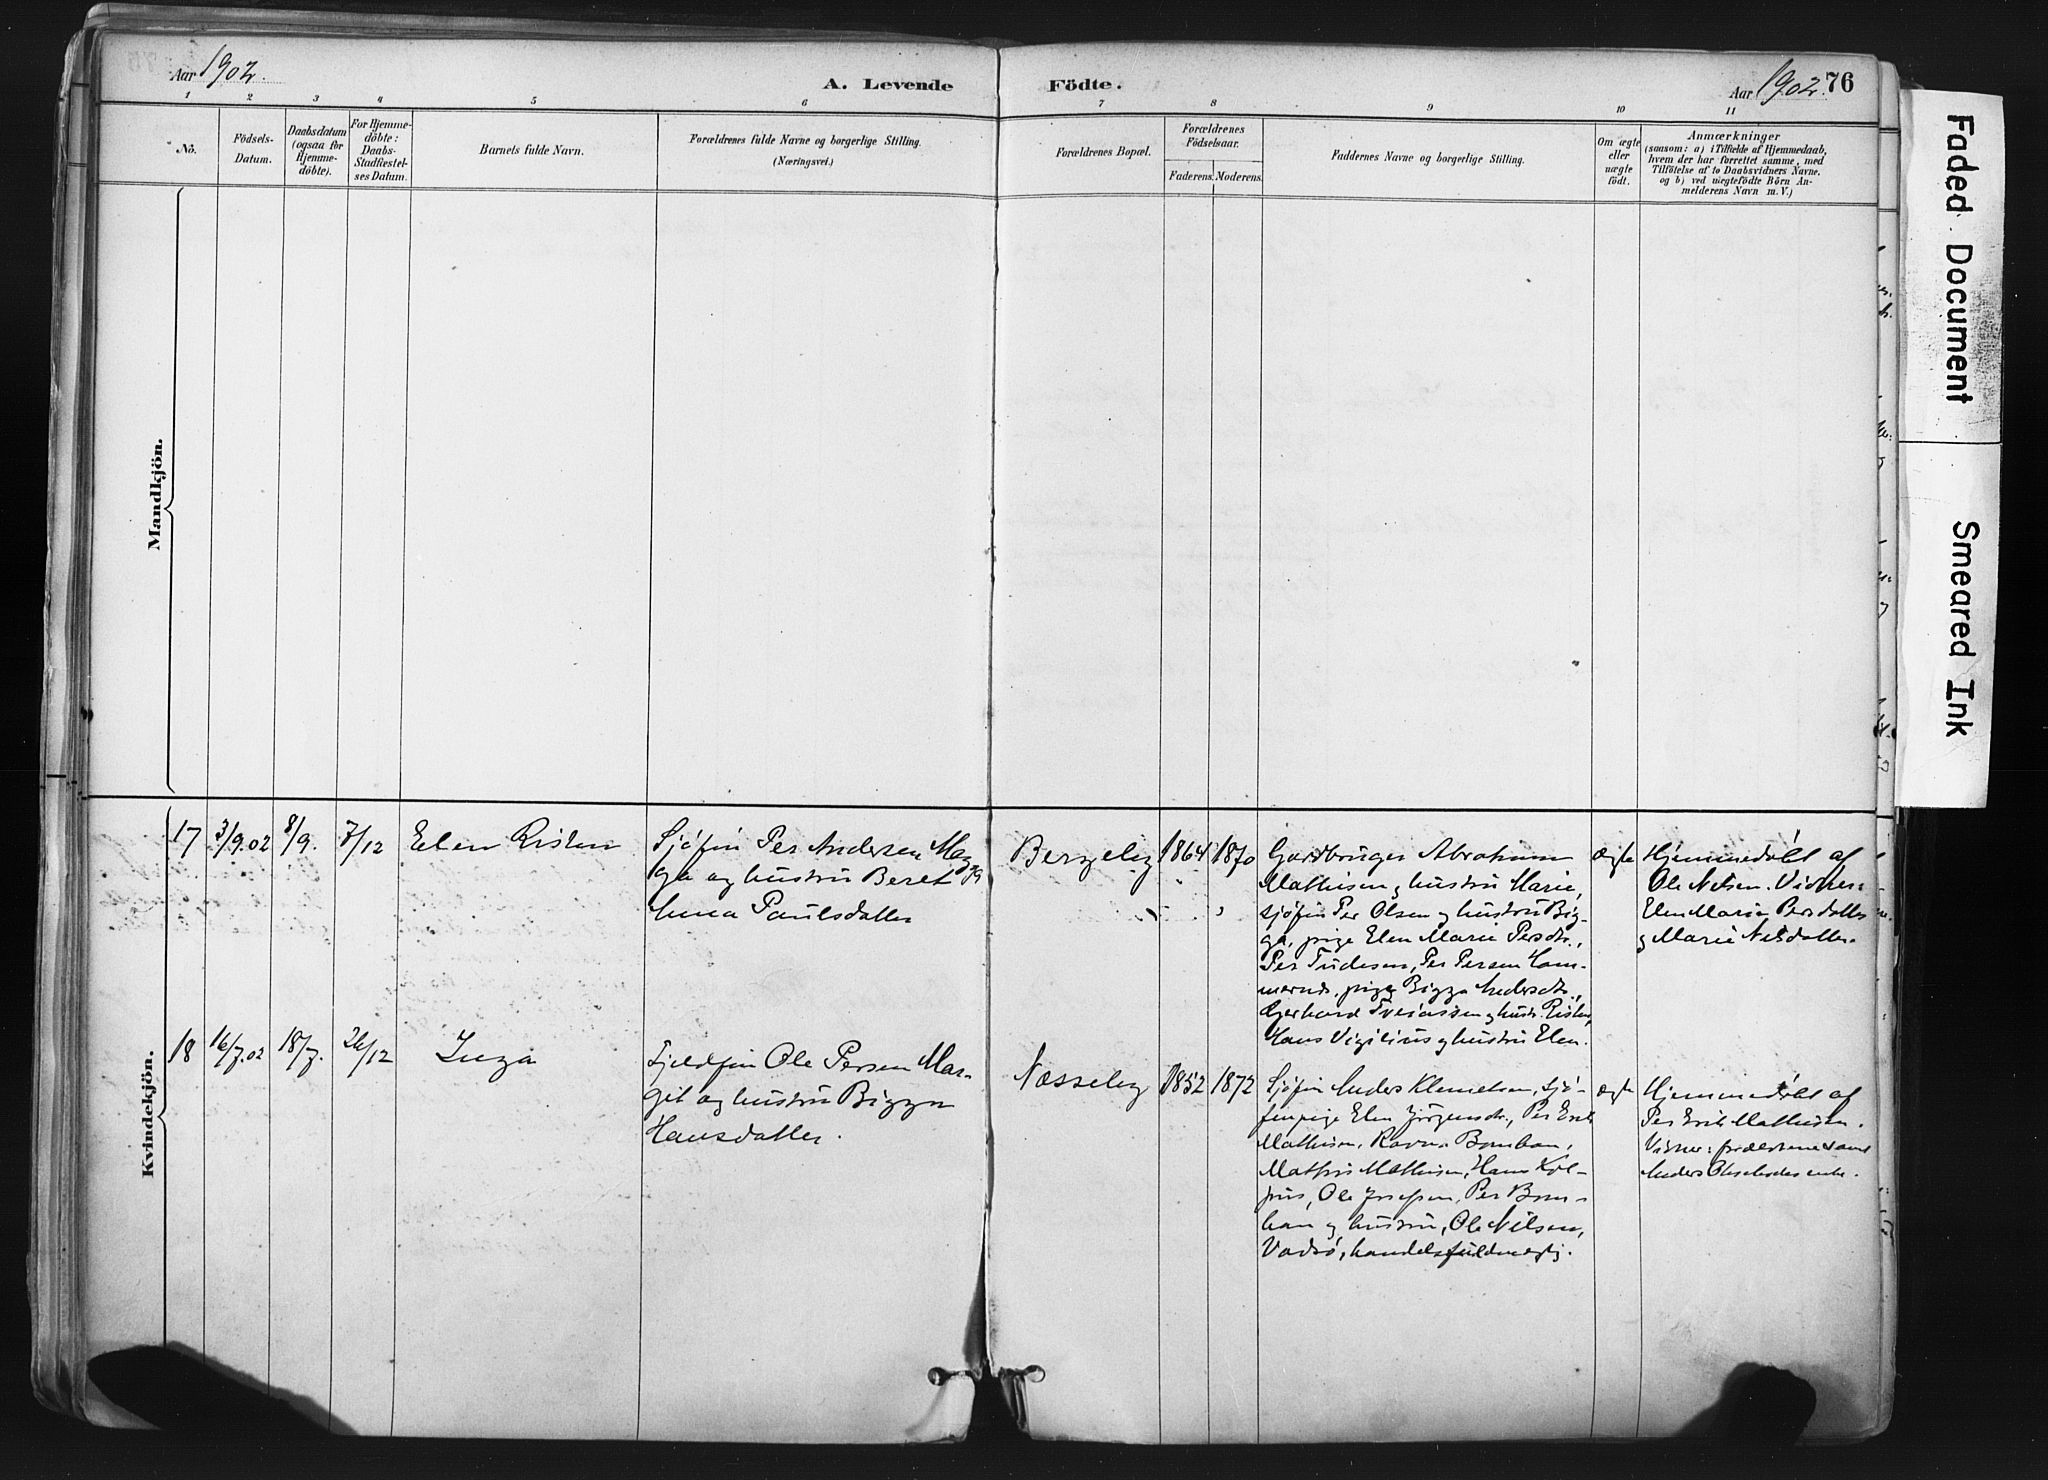 Aar 1902.
A. Levende Födte.
Aar 1902. 76
1 2 3 4 5 6 7 8 9 10 11
No.
Födsels-
Datum.
Daabsdatum
(ogsaa for
Hjemme-
döbte).
For Hjemme-
döbte:
Daabs-
Stadfæstel-
ses Datum.
Barnets fulde Navn.
Forældrenes fulde Navne og borgerlige Stilling.
(Næringsvei.)
Forældrenes Bopæl.
Forældrenes
Födselsaar.
Faderens. Moderens.
Faddernes Navne og borgerlige Stilling.
Om ægte
eller
uægte
födt.
Anmærkninger
(saasom: a) i Tilfælde af Hjemmedaab,
hvem der har forrettet samme, med
Tilföielse af to Daabsvidners Navne,
og b) ved uægtefödte Börn An-
melderens Navn m. V.)
Mandkjön.
Kvindekjön.
17 3/9.02 8/9. 7/12 Elen Risten
Sjöfin Per Andersen Meg-
ga og hustru Beret
Anna Paulsdatter
Bergeby 1864 1870
Gardbruger Abraham
Mathisen og hustru Marie,
sjöfin Per Olsen og hustru Big-
ga, pige Elen Marie Persdtr.,
Per Tudesen, Per Persen Ham-
mernds, pige Bigga Andersdtr.,
Gerhard Tveiassen og hustr. Risten,
Hans Vigilius og hustru Elen.
ægte
Hjemmedöbt af
Ole Nilsen. Vidner:
Elen Marie Persdatter
og Marie Nilsdatter.
18 16/7.02 18/7. 26/12 Inga
Fjeldfin Ole Persen Mar-
git og hustru Bigga
Hansdatter.
Næsseby 1852 1872
Sjöfin Anders Klemetsen, sjö-
finpige Elen Jörgensdtr., Per Erik
Mathisen, Ravna Bomban,
Mathis Mathisen, Hans Kol-
pus, Ole Josefsen, Per Bom-
ban og hustru, Ole Nilsen,
Vadsö, handelsfuldmægtig.
ægte
Hjemmedöbt af
Per Erik Mathisen.
Vidner: forældrene samt
Anders
Faded Document
Smeared Ink